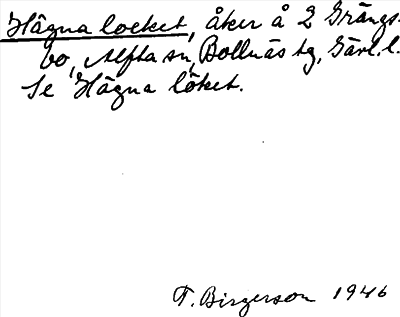 Hägna locket, åker å 2 Grängs-
bo, Alfta sn, Bollnäs tg, Gävl. l.
Se Hägna löket.
F. Birgerson 1946